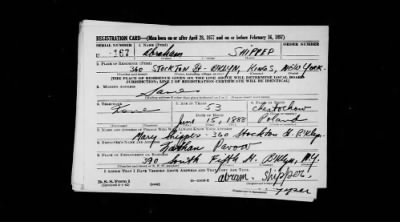 REGISTRATION CARD—(Men born on or after April 28, 1877 and on or before February 16, 1897)
SERIAL NUMBER 1. NAME (Print) ORDER NUMBER
U 167 Abraham SHIPPER
2. PLACE OF RESIDENCE (Print)
360 STOCKTON St- BKLYN, KINGS, NEW YORK.
[THE PLACE OF RESIDENCE GIVEN ON THE LINE ABOVE WILL DETERMINE LOCAL BOARD
JURISDICTION; LINE 2 OF REGISTRATION CERTIFICATE WILL BE IDENTICAL]
3. MAILING ADDRESS
Same
4. TELEPHONE 5. AGE IN YEARS 6. PLACE OF BIRTH
53
DATE OF BIRTH
June 15, 1888 Poland
7. NAME AND ADDRESS OF PERSON WHO WILL ALWAYS KNOW YOUR ADDRESS
Mary Shipper - 360 Stockton St. Bklyn.
8. EMPLOYER'S NAME AND ADDRESS
Nathan
9. PLACE OF EMPLOYMENT OR BUSINESS
390 South Fifth St. Bklyn, N.Y.
I AFFIRM THAT I HAVE VERIFIED ABOVE ANSWERS AND THAT THEY ARE TRUE.
D. S. S. Form 1
Shipper